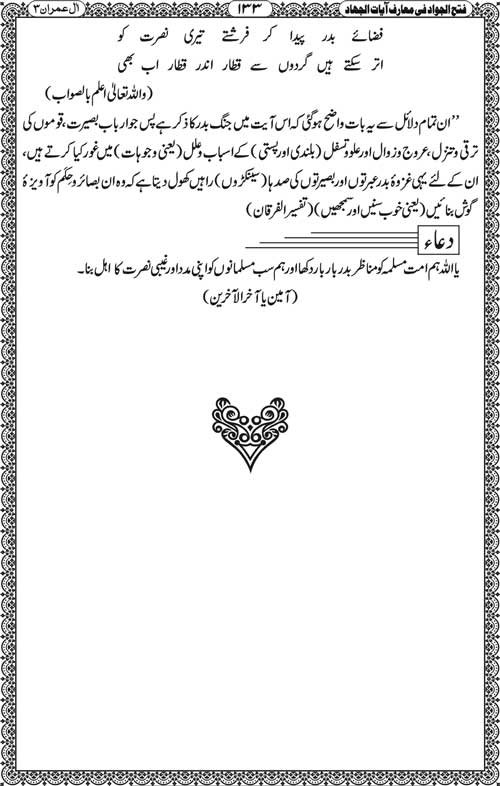 فتح الجواد فی معارف آیات الجھاد ۱۳۳ آل عمران ۳
فضائے بدر پیدا کر فرشتے تیری نصرت کو
اتر سکتے ہیں گردوں سے قطار اندر قطار اب بھی
(واللہ تعالیٰ اعلم بالصواب)
’’ان تمام دلائل سے یہ بات واضح ہوگئی کہ اس آیت میں جنگ بدر کا ذکر ہے پس جو ارباب بصیرت، قوموں کی
ترقی وتنزل، عروج وزوال اور علو وتسفل (بلندی اور پستی) کے اسباب وعلل (یعنی وجوہات) میں غور کیا کرتے ہیں،
ان کے لئے یہی غزوۂ بدر عبرتوں اور بصیرتوں کی صدہا (سینکڑوں) راہیں کھول دیتا ہے کہ وہ ان بصائر وحِکم کو آویزۂ
گوش بنائیں (یعنی خوب سنیں اور سمجھیں) (تفسیر الفرقان)
دعاء
یا اللہ ہم امت مسلمہ کو مناظر بدر بار بار دکھا اور ہم سب مسلمانوں کو اپنی مدد اور غیبی نصرت کا اہل بنا۔
(آمین یا آخر الآخرین)